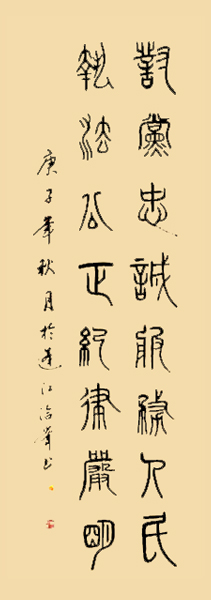 對黨忠誠服務人民
執法公正紀律嚴明
庚子年秋月於江書